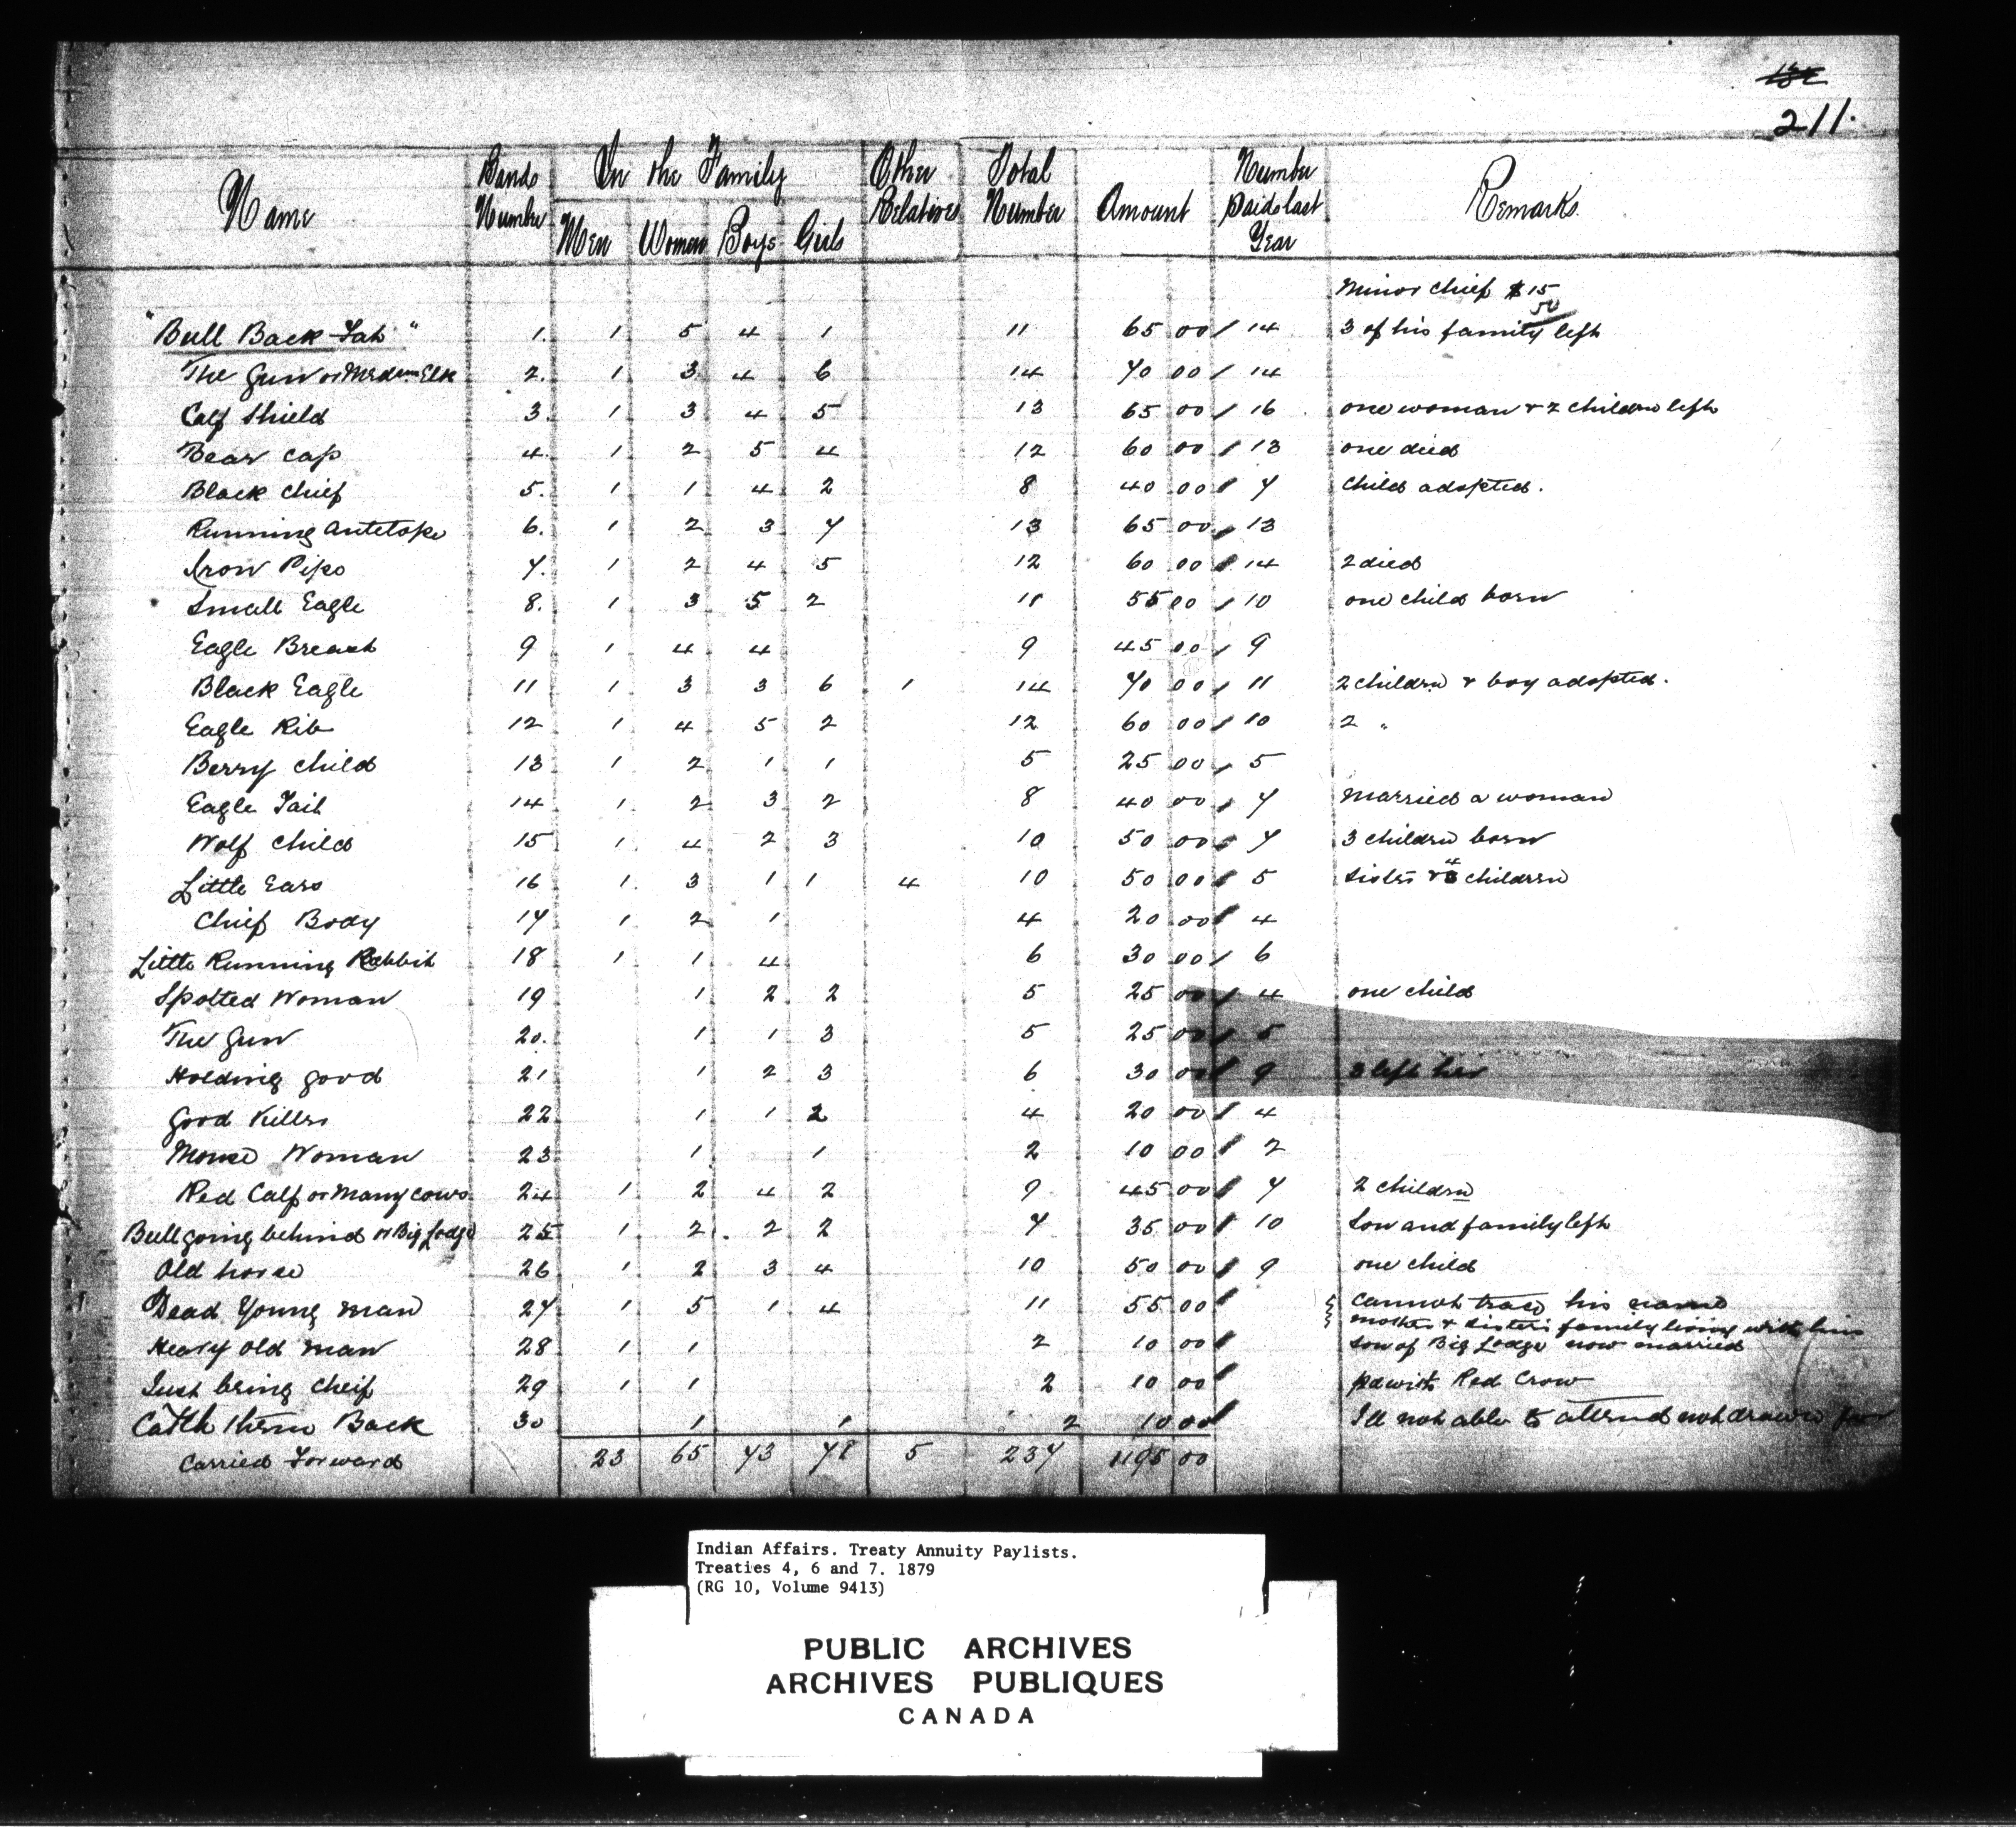 132
211.
Name Bands Number In the Family Men Women Boys Girls Other Relatives Total Number Amount Number Paid last Year Remarks
Minor Chief $15
50
"Bull Back Fat" 1. 1 5 4 1 11 65 00 14 3 of his family left
The Gun or Medcine Elk 2. 1 3 4 6 14 70 00 14
Calf Shield 3. 1 3 4 5 13 65 00 16 one woman & 2 children left
Bear Cap 4. 1 2 5 4 12 60 00 13 one died
Black Chief 5. 1 1 4 2 8 40 00 7 Child adopted.
Running Antelope 6. 1 2 3 7 13 65 00 13
Iron Pipe 7. 1 2 4 5 12 60 00 14 2 died
Small Eagle 8. 1 3 5 2 11 55 00 10 one child born
Eagle Breast 9 1 4 4 9 45 00 9
Black Eagle 11 1 3 3 6 1 14 70 00 11 2 children & boy adopted.
Eagle Rib 12 1 4 5 2 12 60 00 10 2 "
Berry Child 13 1 2 1 1 5 25 00 5
Eagle Tail 14 1 2 3 2 8 40 00 7 Married a woman
Wolf Child 15 1 4 2 3 10 50 00 7 3 children born
Little Ears 16 1 3 1 1 4 10 50 00 5 Sister & 4 children
Chief Body 17 1 2 1 4 20 00 4
Little Running Rabbit 18 1 1 4 6 30 00 6
Spotted Woman 19 1 2 2 5 25 00 4 one child
The Gun 20. 1 1 3 5 25 00 5
Holding good 21 1 2 3 6 30 00 9 3 left her
Good Killer 22 1 1 2 4 20 00 4
Mouse Woman 23 1 1 2 10 00 2
Red Calf or Many Cows 24 1 2 4 2 9 45 00 7 2 children
Bull going behind or Big Lodge 25 1 2 2 2 7 35 00 10 Son and family left
Old horse 26 1 2 3 4 10 50 00 9 one child
Dead Young man 27 1 5 1 4 11 55 00 Cannot trace his name
mother & sister's family living with him
Heavy old man 28 1 1 2 10 00 Son of Big Lodge now married
Just being Cheif 29 1 1 2 10 00 pd with Red Crow
Catch them Back 30 1 1 2 10 00 Ill not able to attend not drawn for
Carried Forward 23 65 73 78 5 237 1195 00
Indian Affairs. Treaty Annuity Paylists.
Treaties 4, 6 and 7. 1879
(RG 10, Volume 9413)
PUBLIC ARCHIVES
ARCHIVES PUBLIQUES
CANADA